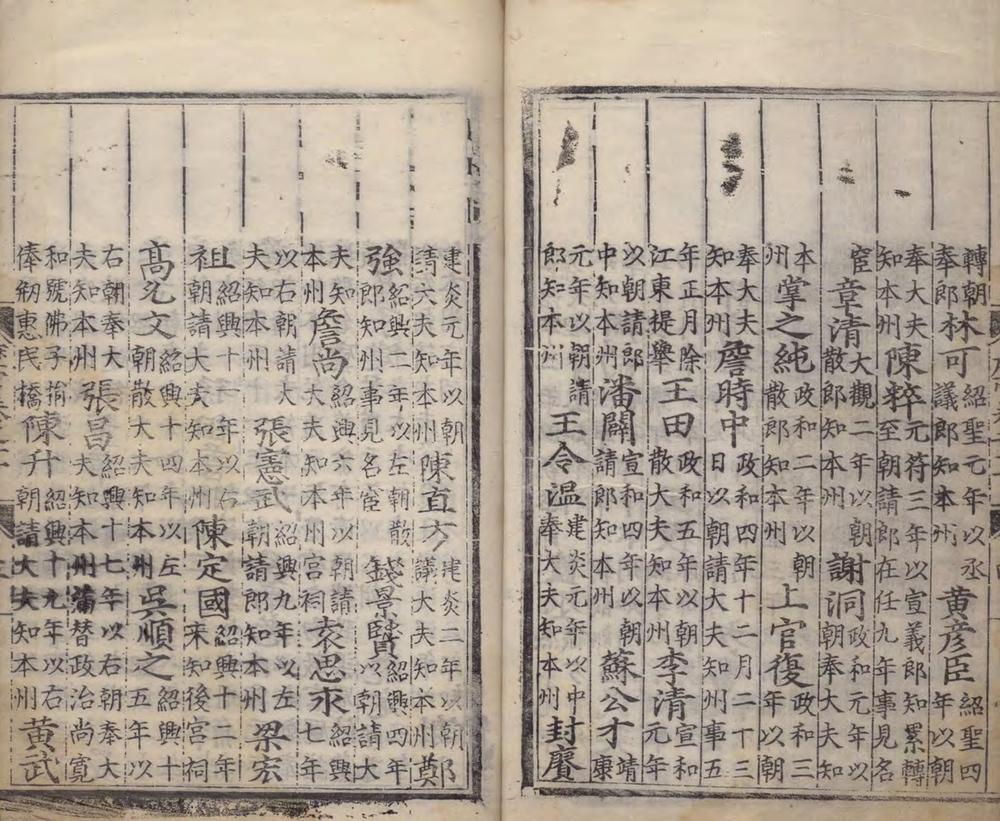 轉朝奉郎林可紹聖元年以丞議郎知本州黄彦臣紹聖四年以朝
奉大夫知本州陳粹元符三年以宣義郎知累轉至朝請郎在任九年事見名
宦章清大觀二年以朝散郎知本州謝洞政和元年以朝奉大夫知
本州掌之純政和二年以朝散郎知本州上官復政和三年以朝
奉大夫知本州詹時中政和四年十二月二十三日以朝請大夫知州事五
年正月除江東提舉王田政和五年以朝散大夫知本州李清宣和元年
以朝請郎中知本州潘闢宣和四年以朝請郎知本州蘇公才靖康
元年以朝請郎知本州王令温建炎元年以中奉大夫知本州封賡
建炎元年以朝請大夫知本州陳直方建炎二年以朝議大夫知本州鄭
強紹興二年以左朝散郎知州事見名宦錢景賢紹興四年以朝請大
夫知本州詹尚紹興六年以朝請大夫知本州宮祠袁思永紹興七年
以右朝請大夫知本州張憲武紹興九年以左朝請郎知本州梁宏
祖紹興十一年以右朝請大夫知本州陳定國紹興十二年來知後宮祠
高允文紹興十四年以左朝散大夫知本州吳順之紹興十五年以
右朝奉大夫知本州張昌紹興十七年以右朝奉大夫知本州蒲替政治尚寬
和號佛子捐俸刱惠民橋陳升紹興十九年以右朝請大夫知本州黄武